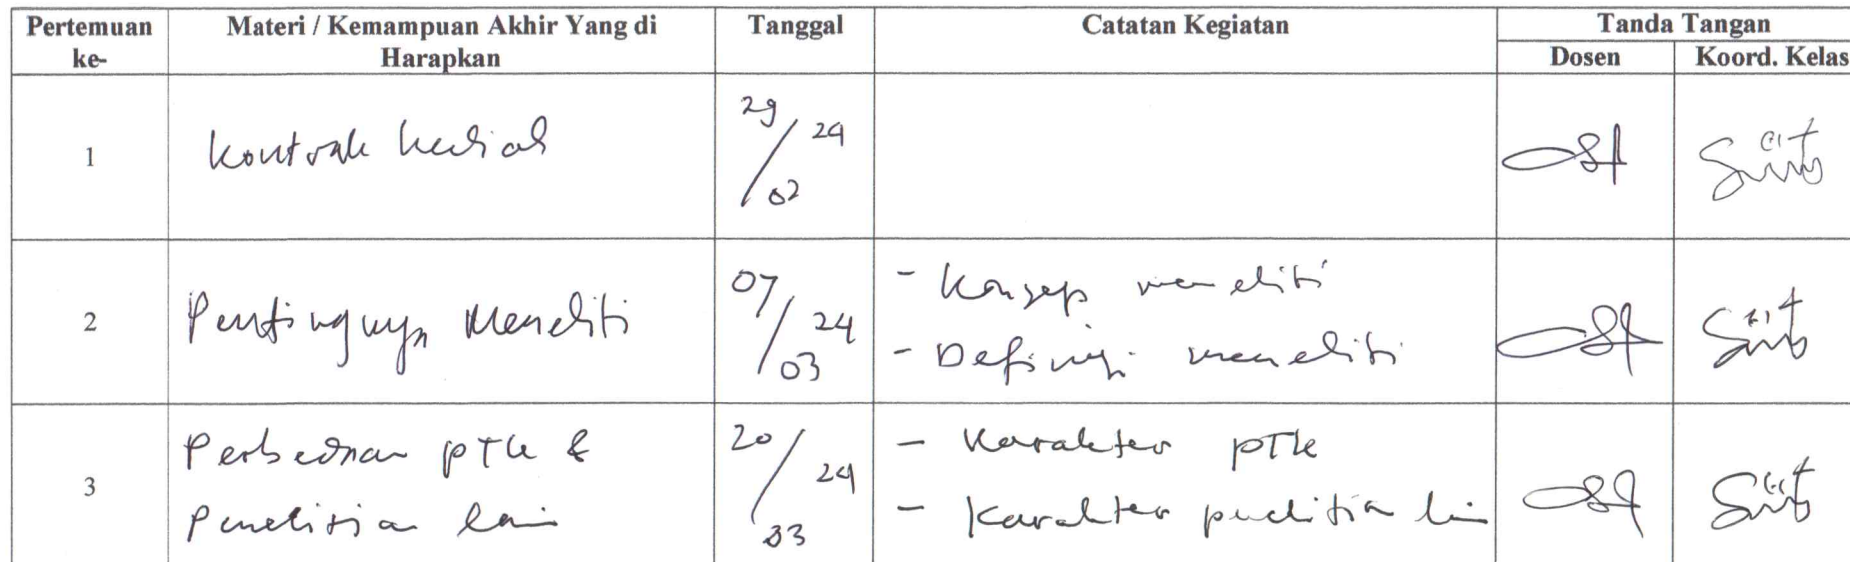 Pertemuan ke-
Materi / Kemampuan Akhir Yang di Harapkan
Tanggal
Catatan Kegiatan
Tanda Tangan
Dosen
Koord. Kelas
1
Kontrak kuliah
29/02 24
2
Pentingnya Meneliti
07/03 24
- Konsep meneliti
- Definisi meneliti
3
Perbedaan PTK &
Penelitian lain
20/03 24
- Karakter PTK
- Karakter penelitian lain